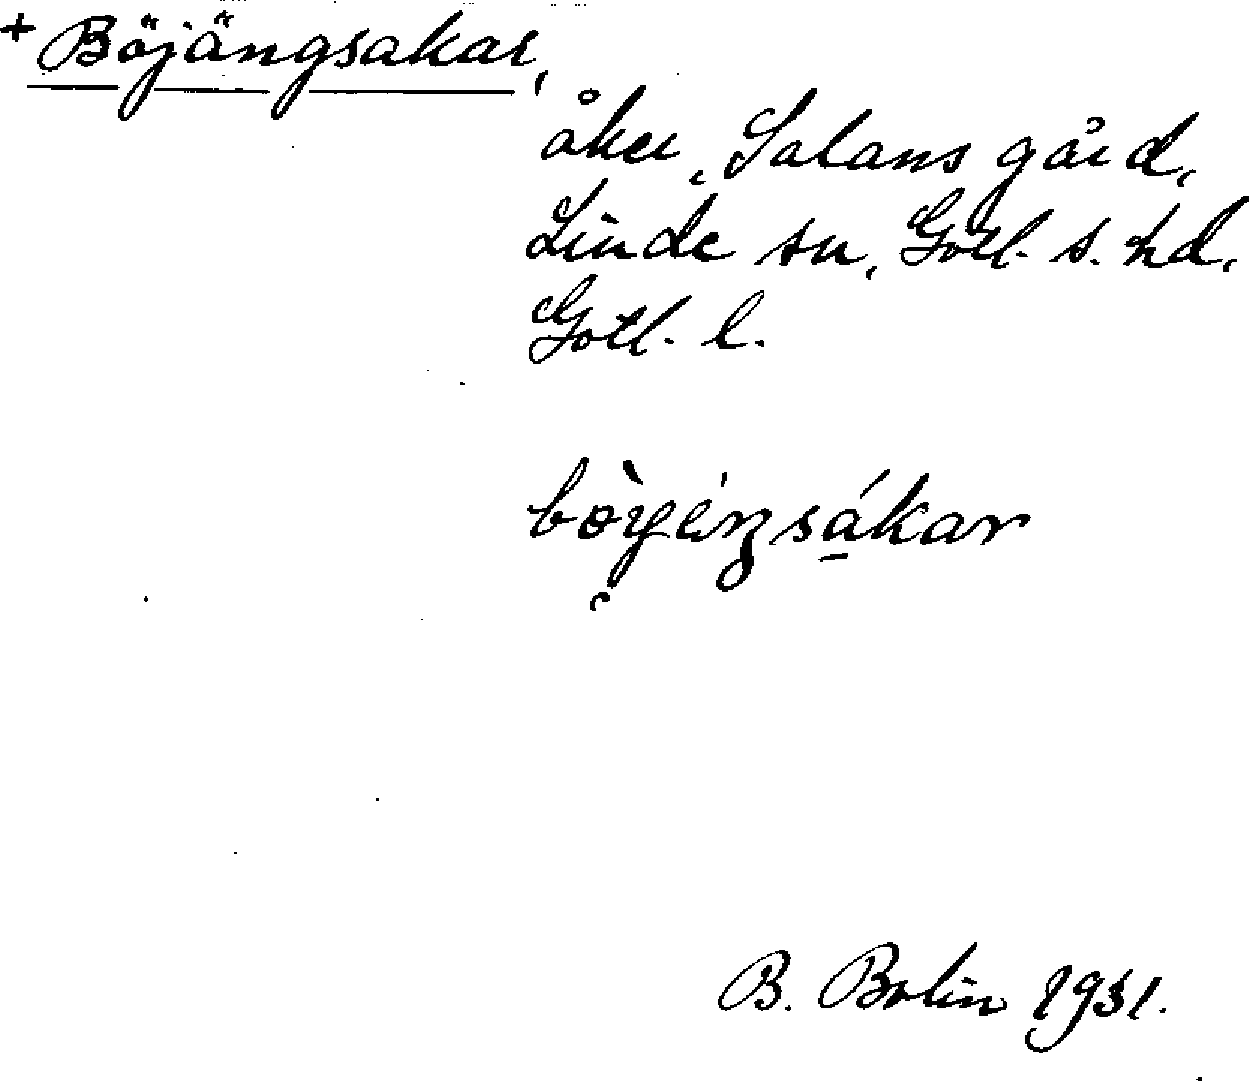 + Böjängsakar,
åker, Salans gård,
Linde sn, Gotl. s. hd,
Gotl. l.
B. Bolin 1931.